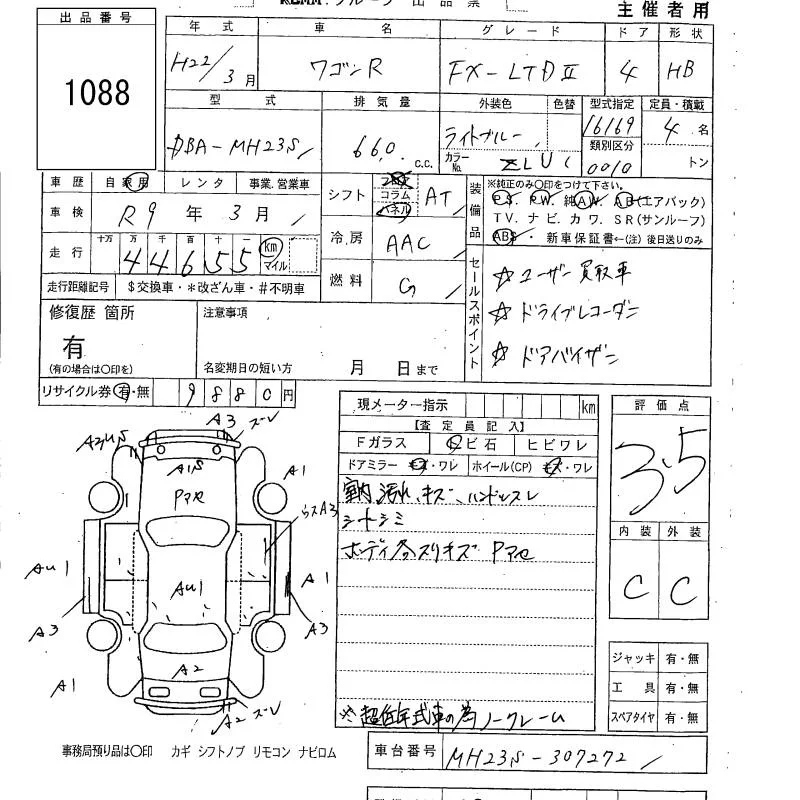 出品票
主催者用
出品番号
1088
年式 車名 グレード ドア 形状
H22/3月 ワゴンR FX-LTDⅡ 4 HB
型式 排気量 外装色 色替 型式指定 定員・積載
DBA-MH23S 660 c.c. ライトブルー 16169 4名
カラーNo. ZLU 類別区分 0010 トン
車歴 自家用 レンタ 事業.営業車
車検 R9年3月
走行 十万 万 千 百 十 一
44655 km マイル
走行距離記号 $交換車・*改ざん車・#不明車
シフト コラム パネル AT
冷房 AAC
燃料 G
装備品 ※純正のみ〇印をつけて下さい。
P.S. P.W. 純AW. AB(エアバック)
TV. ナビ. カワ. SR(サンルーフ)
ABS・新車保証書←(注)後日送りのみ
セールスポイント
☆ユーザー買取車
☆ドライブレコーダー
☆ドアバイザー
修復歴 箇所
有
(有の場合は〇印を)
注意事項
名変期日の短い方 月 日まで
リサイクル券 有・無 9880円
現メーター指示 km
【査定員記入】
Fガラス トビ石 ヒビワレ
ドアミラー キズ・ワレ ホイール(CP) キズ・ワレ
室内 汚れ、キズ、ハンドルスレ
シートシミ
ボディ各スリキズ Pアセ
※超低年式車の為ノークレーム
評価点
3.5
内装 外装
C C
ジャッキ 有・無
工具 有・無
スペアタイヤ 有・無
A3 ズレ
A3US
A1S
A1
Pアセ
ウスA3
AU1
AU1
A1
A3
A3
A2
A1
A2 ズレ
事務局預り品は〇印 カギ シフトノブ リモコン ナビロム
車台番号 MH23S-307272